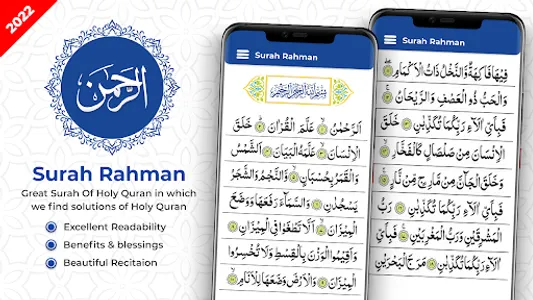 2022
الرحمن
Surah Rahman
Great Surah Of Holy Quran in which
we find solutions of Holy Quran
Excellent Readability
Benefits & blessings
Beautiful Recitaion
Surah Rahman
بِسْمِ اللهِ الرَّحْمٰنِ الرَّحِيْمِ
اَلرَّحْمٰنُ ۙ عَلَّمَ الْقُرْاٰنَ ؕ خَلَقَ
الْاِنْسَانَ ۙ عَلَّمَهُ الْبَيَانَ اَلشَّمْسُ
وَالْقَمَرُ بِحُسْبَانٍ ۙ وَّالنَّجْمُ وَالشَّجَرُ
يَسْجُدٰنِ وَالسَّمَآءَ رَفَعَهَا وَوَضَعَ
الْمِيْزَانَ ۙ اَلَّا تَطْغَوْا فِى الْمِيْزَانِ
وَاَقِيْمُوا الْوَزْنَ بِالْقِسْطِ وَلَا تُخْسِرُوا
الْمِيْزَانَ وَالْاَرْضَ وَضَعَهَا لِلْاَنَامِ
Surah Rahman
فِيْهَا فَاكِهَةٌ وَّالنَّخْلُ ذَاتُ الْاَكْمَامِ
وَالْحَبُّ ذُو الْعَصْفِ وَالرَّيْحَانُ
فَبِاَىِّ اٰلَآءِ رَبِّكُمَا تُكَذِّبٰنِ خَلَقَ
الْاِنْسَانَ مِنْ صَلْصَالٍ كَالْفَخَّارِ
وَخَلَقَ الْجَآنَّ مِنْ مَّارِجٍ مِّنْ نَّارٍ
فَبِاَىِّ اٰلَآءِ رَبِّكُمَا تُكَذِّبٰنِ رَبُّ
الْمَشْرِقَيْنِ وَرَبُّ الْمَغْرِبَيْنِ فَبِاَىِّ
اٰلَآءِ رَبِّكُمَا تُكَذِّبٰنِ مَرَجَ الْبَحْرَيْنِ